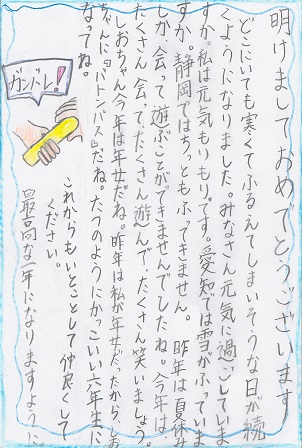 明けましておめでとうございます
どこにいても寒くてふるえてしまいそうな日が続
くようになりました。みなさん元気に過ごしていま
すか。私は元気もりもりです。愛知では雪がふっていま
すか。静岡ではちっともふってきません。昨年は夏休み
しか会って遊ぶことができませんでしたね。今年は
たくさん会って、たくさん遊んで、たくさん笑いましょう。
しおちゃん、今年は年女だね。昨年は私が年女だったからしお
ちゃんに「バトンパス」だね。たつのようにかっこいい六年生に
なってね。
ガンバレ!
これからもいとことして仲良くして
ください。
最高な一年になりますように